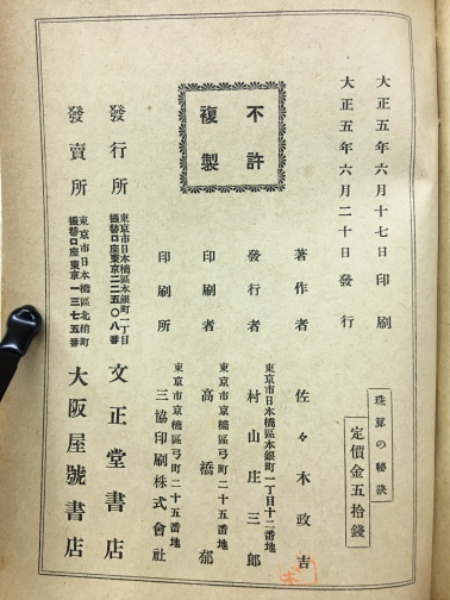 大正五年六月十七日印刷
大正五年六月二十日發行
珠算の秘訣
定價金五拾錢
不許
複製
著作者 佐々木政吉
東京市日本橋區本銀町一丁目十二番地
發行者 村山庄三郎
東京市京橋區弓町二十五番地
印刷者 高橋郁
東京市京橋區弓町二十五番地
印刷所 三協印刷株式會社
發行所
東京市日本橋區本銀町一丁目
振替口座東京二二五〇八番
文正堂書店
發賣所
東京市日本橋區北鞘町
振替口座東京一三七五番
大阪屋號書店